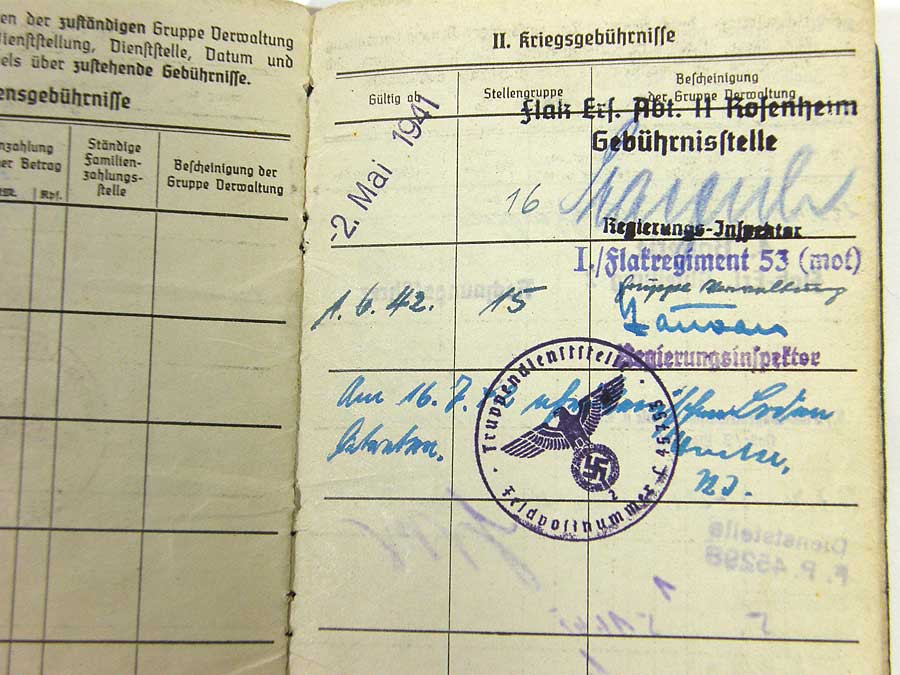 en der zuständigen Gruppe Verwaltung
ienststellung, Dienststelle, Datum und
els über zustehende Gebührnisse.
ensgebührnisse
nzahlung
er Betrag
Rpf.
Ständige
Familien-
zahlungs-
stelle
Bescheinigung der
Gruppe Verwaltung
II. Kriegsgebührnisse
Gültig ab
Stellengruppe
Bescheinigung
der Gruppe Verwaltung
Flak Ers. Abt. 11 Rosenheim
Gebührnisstelle
-2. Mai 1941
16
Regierungs-Inspektor
I./Flakregiment 53 (mot)
1.6.42.
15
Gruppe Verwaltung
Regierungsinspektor
Am 16.7.42 afrikanischen Boden
betreten.
Truppendienststelle
Feldpostnummer L
Dienststelle
F. P. 45298